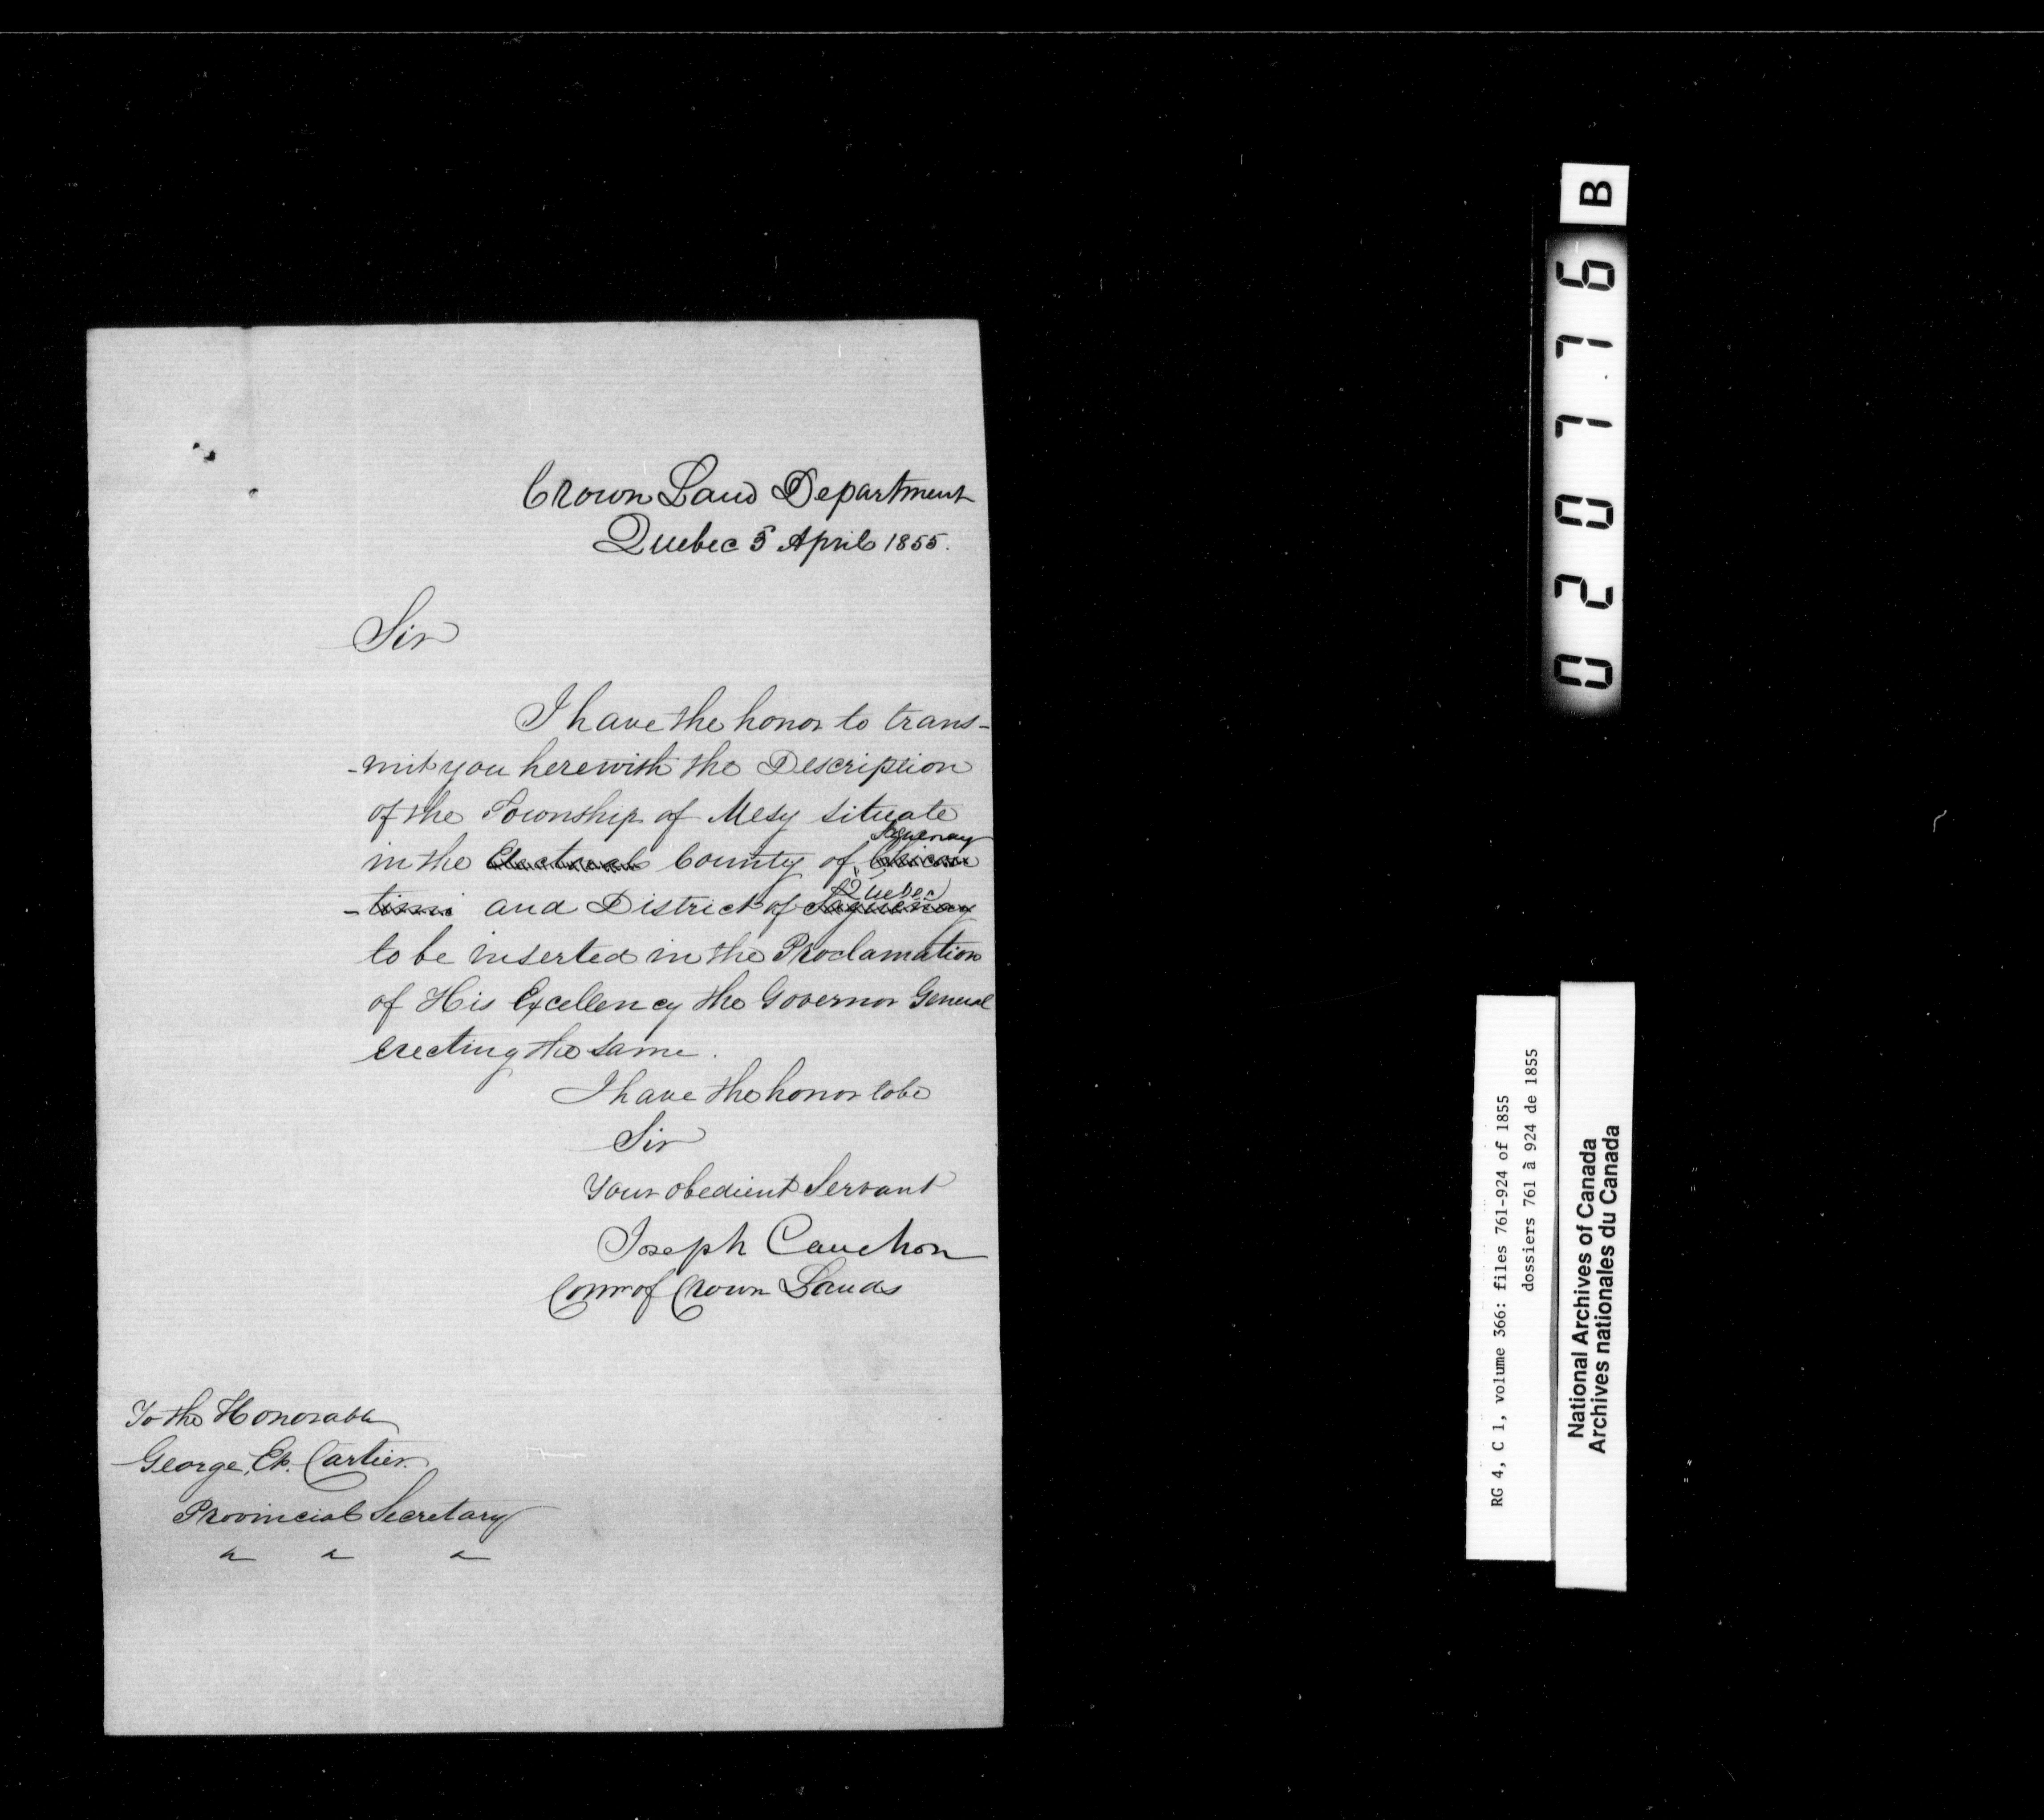 Crown Land Department
Quebec 5 April 1855.
Sir
I have the honor to trans-
-mit you herewith the Description
of the Township of Mesy situate
Saguenay
in the Electoral County of Chicou
Quebec
-timi and District of Saguenay
to be inserted in the Proclamation
of His Excellency the Governor General
erecting the same.
I have the honor to be
Sir
Your obedient Servant
Joseph Cauchon
Comr of Crown Lands
To the Honorable
George, Et. Cartier.
Provincial Secretary
020776 B
RG 4, C 1, volume 366: files 761-924 of 1855
dossiers 761 à 924 de 1855
National Archives of Canada
Archives nationales du Canada